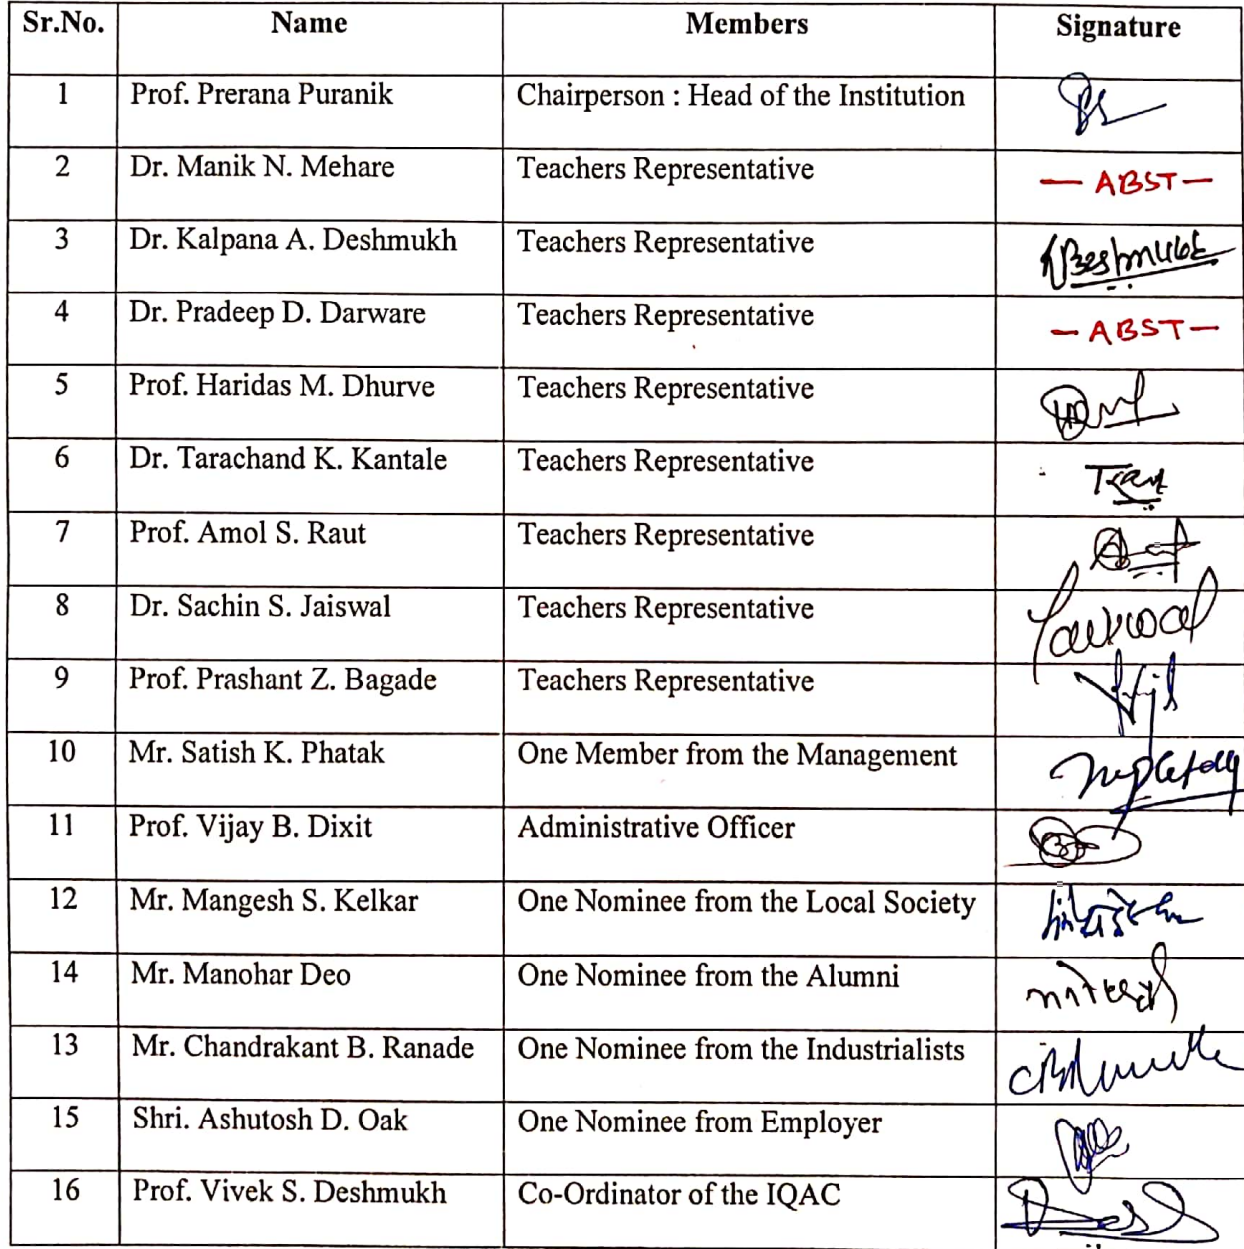 Sr.No. Name Members Signature
1 Prof. Prerana Puranik Chairperson : Head of the Institution
2 Dr. Manik N. Mehare Teachers Representative — ABST —
3 Dr. Kalpana A. Deshmukh Teachers Representative
4 Dr. Pradeep D. Darware Teachers Representative — ABST —
5 Prof. Haridas M. Dhurve Teachers Representative
6 Dr. Tarachand K. Kantale Teachers Representative
7 Prof. Amol S. Raut Teachers Representative
8 Dr. Sachin S. Jaiswal Teachers Representative
9 Prof. Prashant Z. Bagade Teachers Representative
10 Mr. Satish K. Phatak One Member from the Management
11 Prof. Vijay B. Dixit Administrative Officer
12 Mr. Mangesh S. Kelkar One Nominee from the Local Society
14 Mr. Manohar Deo One Nominee from the Alumni
13 Mr. Chandrakant B. Ranade One Nominee from the Industrialists
15 Shri. Ashutosh D. Oak One Nominee from Employer
16 Prof. Vivek S. Deshmukh Co-Ordinator of the IQAC